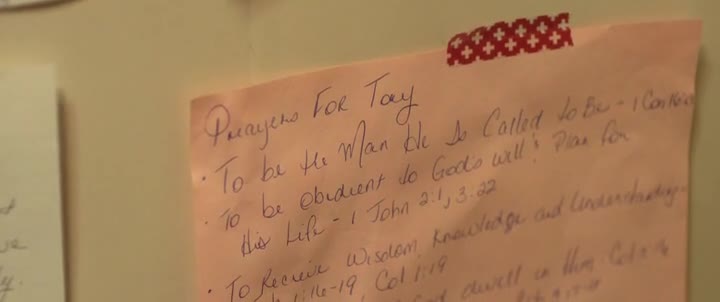 Prayers For Tay
· To be the Man He Is Called to Be - 1 Cor
· To be Obedient to God's will & Plan for
His Life - 1 John 2:1, 3:22
· To Receive Wisdom, Knowledge and Understanding -
1:16-19 Col 1:19
dwell in Him Col